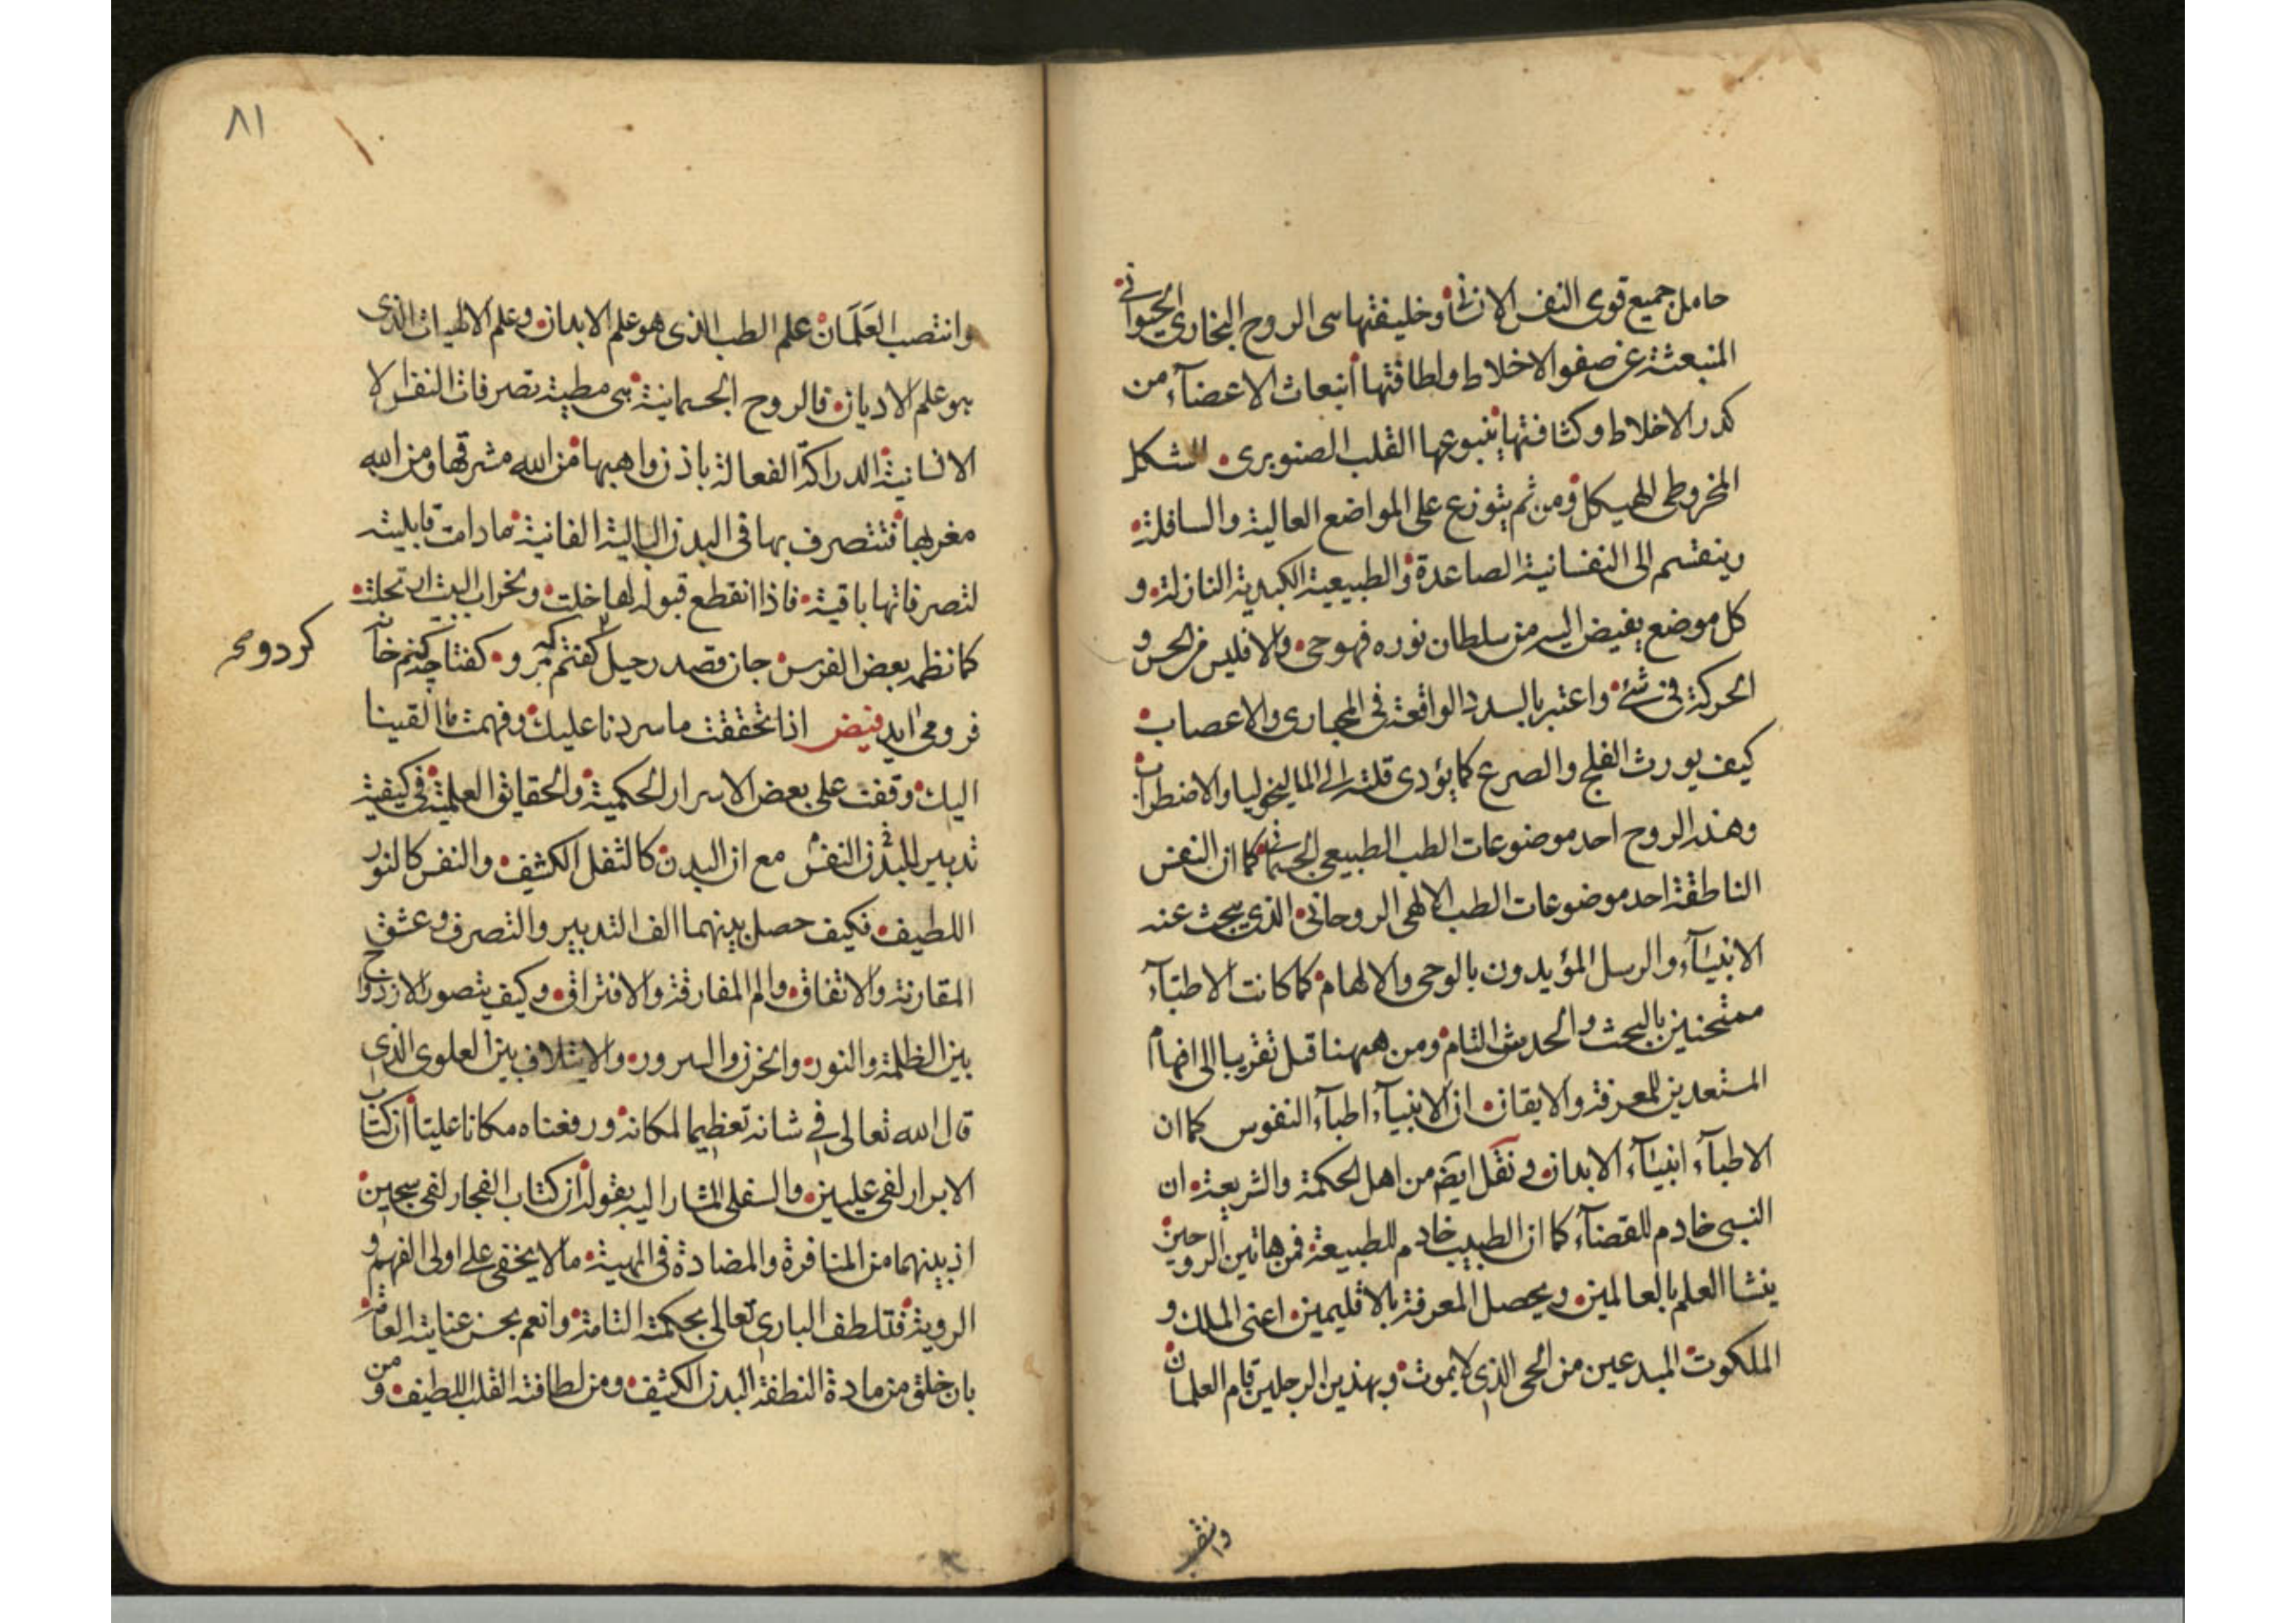 حامل جميع قوى النفس الانسانى وخليفتها سى الروح البخارى الحيوانى
المنبعثة عن صفو الاخلاط ولطافتها أنبعاث الاعضآء من
كدر الاخلاط وكثافتها ينبوعها القلب الصنوبرى الشكل
المخروطى الهيكل ومن ثم يتوزع على المواضع العالية والسافلة
وينقسم الى النفسانية الصاعدة والطبيعية الكبدية النازلة و
كل موضع يفيض اليه من سلطان نوره فهو حى والا فليس من الحس و
الحركة فى شئ واعتبر بالسدد الواقعة فى المجارى والاعصاب
كيف يورث الفلج والصرع كما يؤدى قلته الى الماليخوليا والاضطراب
وهذا الروح احد موضوعات الطب الطبيعى الجسمانى كما ان النفس
الناطقة احد موضوعات الطب الالهى الروحانى الذى يبحث عنه
الانبيآء والرسل المؤيدون بالوحى والالهام كما كانت الاطبآء
ممتحنين بالبحث والحدس التام ومن ههنا قيل تقريبا الى افهام
المستعدين للمعرفة والايقان ان الانبيآء اطبآء النفوس كما ان
الاطبآء انبيآء الابدان و نقل ايضا من اهل الحكمة والشريعة ان
النبى خادم للقضآء كما ان الطبيب خادم للطبيعة فمن هاتين الروحين
ينشا العلم بالعالمين ويحصل المعرفة بالاقليمين اعنى الملك و
الملكوت المبدعين من الحى الذى لا يموت وبهذين الرجلين قام العلمان
وانتصب
٨١
وانتصب العَلَمَان علم الطب الذى هو علم الابدان وعلم الالهيات الذى
هو علم الاديان فالروح الجسمانية هى مطية تصرفات النفس لا
الانسانية الدراكة الفعالة باذن واهبها من الله مشرقها ومن الله
مغربها فتتصرف بها فى البدن البالية الفانية ما دامت قابليته
لتصرفاتها باقية فاذا انقطع قبوله لها خلت وبخراب البيت ارتحلت
كما نظمه بعض الفرس جان قصد رحيل كفتم كه مرو كفتا چكنم خانه
كرد و صح
فرو مى ايد فيض اذا تحققت ما سردنا عليك وفهمت ما القينا
اليك وقفت على بعض الاسرار الحكمية والحقايق العلمية فى كيفية
تدبير للبدن النفس مع ان البدن كالثفل الكثيف والنفس كالنور
اللطيف فكيف حصل بينهما الف التدبير والتصرف وعشق
المقارنة والاتفاق والم المفارقة والافتراق وكيف يتصور الازدواج
بين الظلمة والنور والحزن والسرور والايتلاف بين العلوى الذى
قال الله تعالى فى شانه تعظيما لمكانه ورفعناه مكانا عليّا ان كتاب
الابرار لفى عليين والسفلى المشار اليه بقوله ان كتاب الفجار لفى سجين
اذ بينهما من المنافرة والمضادة فى المهية ما لا يخفى على اولى الفهم و
الروية فتلطف البارى تعالى بحكمته التامة وانعم بحسن عنايته العامة
بان خلق من مادة النطفة البدن الكثيف ومن لطافته القلب اللطيف و من